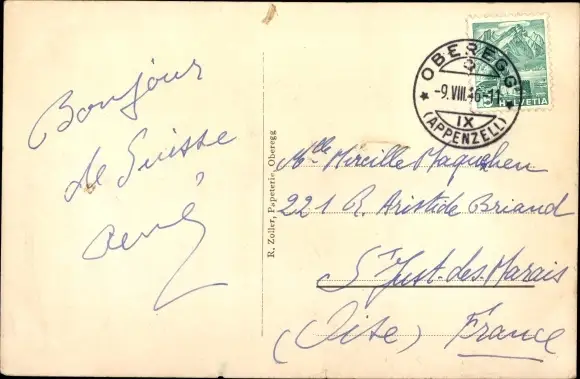 Bonjour
de Suisse
René
R. Zoller, Papeterie, Oberegg
OBEREGG
-9.VIII.46-11
IX
(APPENZELL)
HELVETIA
Mlle Mireille
221 R. Aristide Briand
St Just-des-Marais
(Oise) France